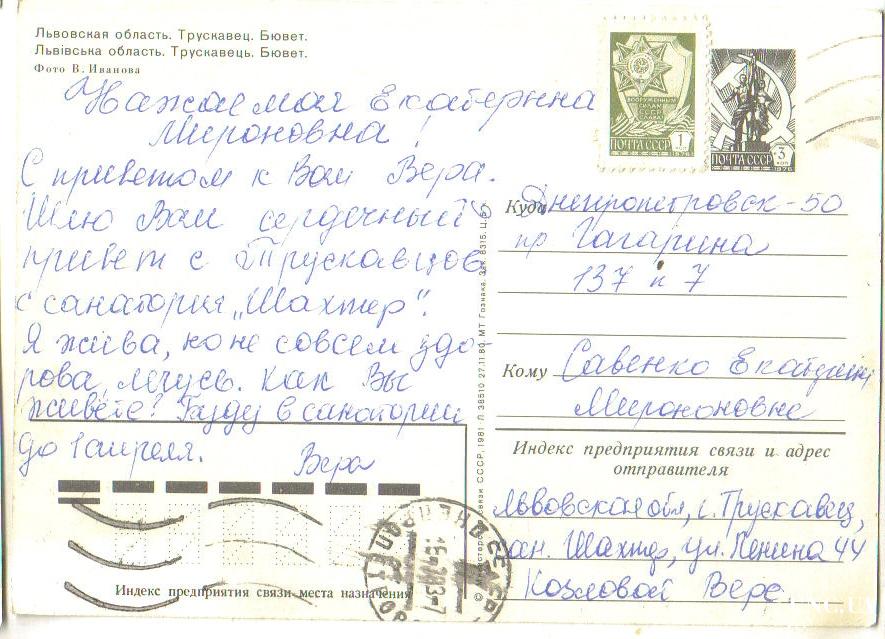 Львовская область. Трускавец. Бювет.
Львівська область. Трускавець. Бювет.
Фото В. Иванова
ВООРУЖЕННЫМ
СИЛАМ
СССР
СЛАВА!
ПОЧТА СССР 1 коп
1976
ПОЧТА СССР 3 коп
1976
Уважаемая Екатерина
Мироновна!
С приветом к Вам Вера.
Шлю Вам сердечный
привет с Трускавцов
с санатория "Шахтер".
Я жива, но не совсем здо-
рова, лечусь. Как Вы
живете? Буду в санатории
до 1 апреля. Вера
Куда Днепропетровск-50
пр Гагарина
137 к 7
Кому Савенко Екатерине
Мироновне
Индекс предприятия связи и адрес
отправителя
Львовская обл, г. Трускавец,
сан. Шахтер, ул. Ленина 44
Козловой Вере.
Индекс предприятия связи места назначения
© Министерство связи СССР, 1981 Л 38510 27.11.80. МТ Гознака. Зак. 8315. Ц. 5 к.